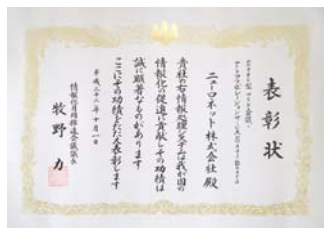 表彰状
ニューロネット株式会社 殿
貴社の右情報処理システムは我が国の
情報化の促進に貢献しその功績は
誠に顕著なものがあります
ここにその功績をたたえ表彰します
平成二十二年十月一日
情報化月間推進会議議長
牧野 力